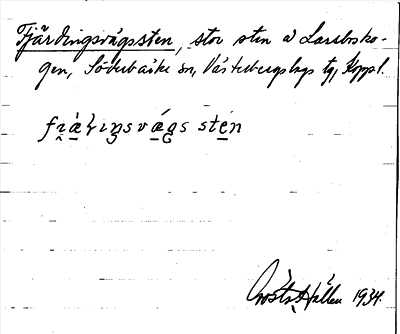 Fjärdingsvägssten, stor sten å Larsbosko-
gen, Söderbärke sn, Västerbergslags tg, Koppl.
fi̯ä̀ɽiŋsvä́gs stén
Hållén 1934.